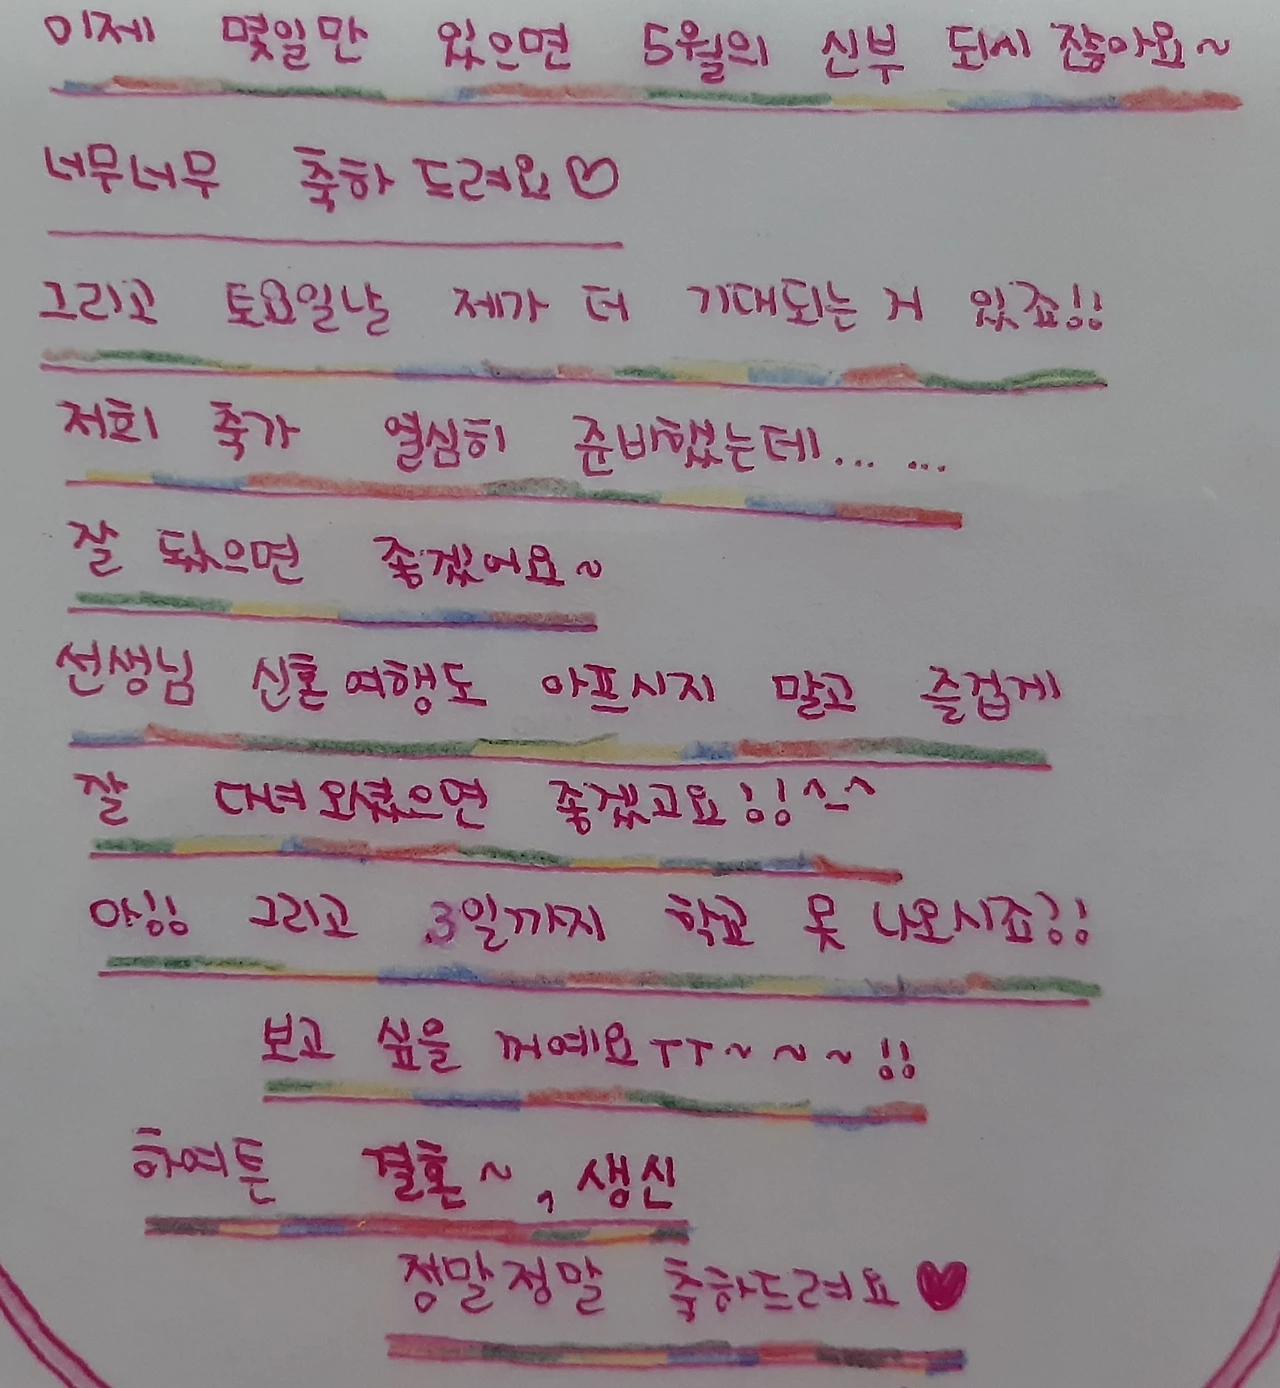 이제 몇일만 있으면 5월의 신부 되시잖아요~
너무너무 축하 드려요♡
그리고 토요일날 제가 더 기대되는 거 있죠!!
저희 축가 열심히 준비했는데... ...
잘 됐으면 좋겠어요~
선생님 신혼여행도 아프시지 말고 즐겁게
잘 다녀오셨으면 좋겠고요!!^-^
아!! 그리고 3일까지 학교 못 나오시죠?!
보고 싶을 꺼예요ㅜㅜ~ ~ ~!!
하여튼 결혼~, 생신
정말정말 축하드려요♥